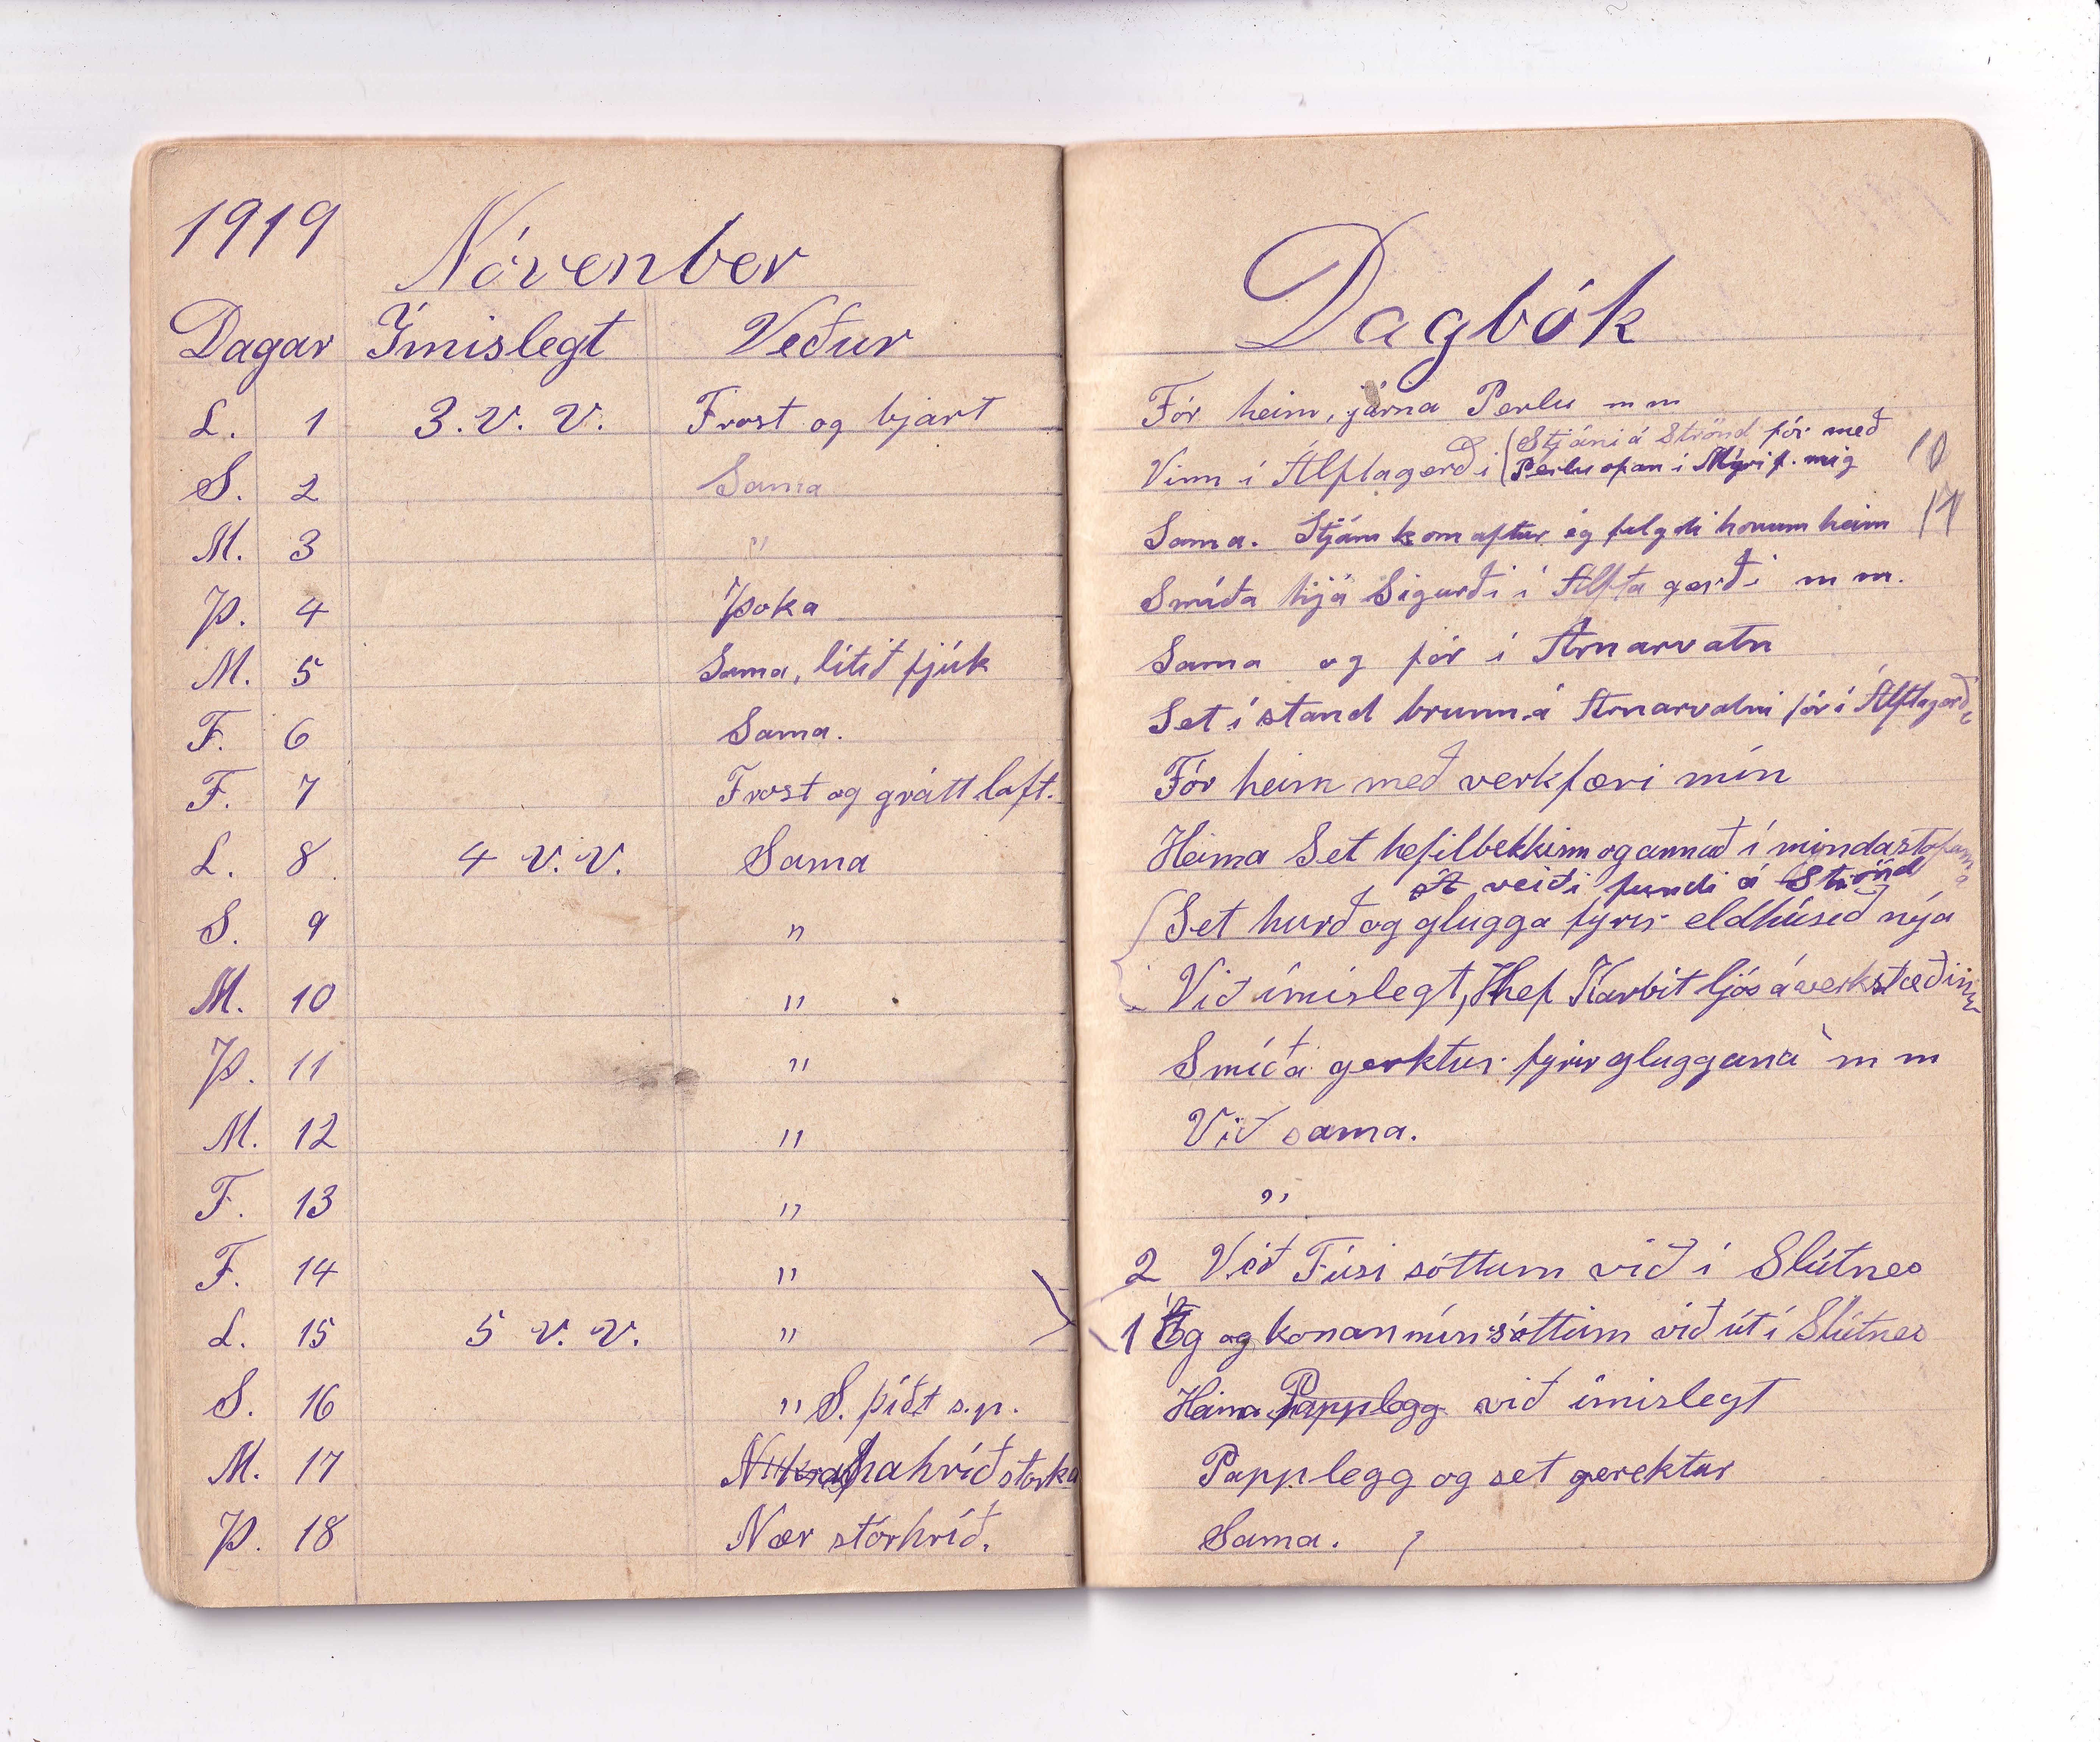 1919
Nóvenber
Dagar Ímislegt Veður
L. 1 3. V. V. Frost og bjart
S. 2 Sama
M. 3 "
Þ. 4 Þoka
M. 5 Sama, litið fjúk
F. 6 Sama.
F. 7 Frost og grátt loft.
L. 8 4 V. V. Sama
S. 9 "
M. 10 "
Þ. 11 "
M. 12 "
F. 13 "
F. 14 "
L. 15 5 V. V. "
S. 16 " S. þíðt s.p.
M. 17 hahríð storka
Þ. 18 Nær stórhríð.
Dagbók
Fór heim, járna Perlu m m
(Stjáni á Strönd fór með
Vinn í Álftagerði Perlu ofan í Mýri f. mig 10
Sama. Stjáni kom aftur ég fylgdi honum heim 17
Smíða hjá Sigurði í Álftagerði m m.
Sama og fór í Arnarvatn
Set í stand brunn á Arnarvatni fór í Álftagerði
Fór heim með verkfæri mín
Heima Set hefilbekkinn og annað í mindastofuna
Á veiði fundi á Strönd
Set hurð og glugga fyrir eldhúsið nýa
Við ímislegt, Hef Karbít ljós á verkstæðinu
Smíða gerktur fyrir gluggana m m
Við sama.
"
2 Við Fúsi sóttum við í Slútnes
1 Eg og konan mín sóttum við út í Slútnes
Heima Papplegg við ímislegt
Papplegg og set gerektur
Sama.